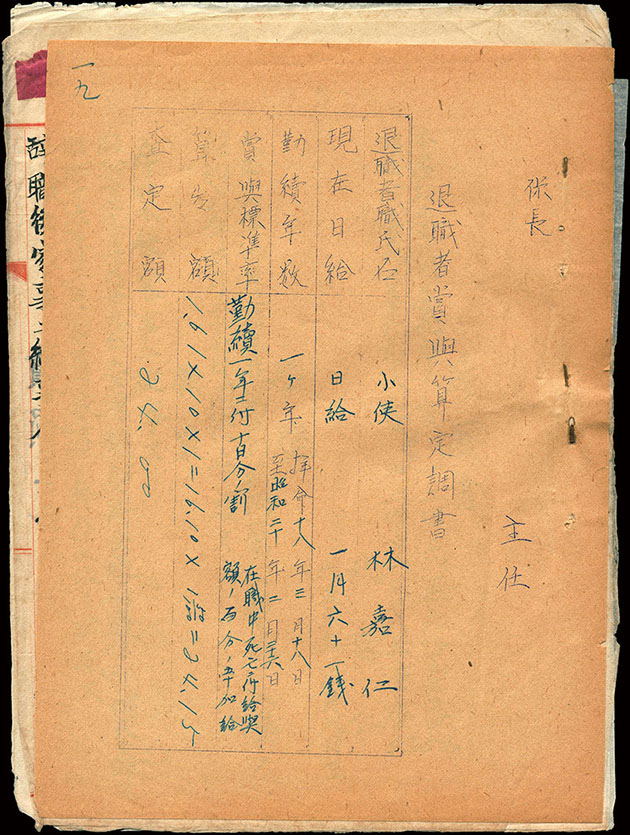 一九
係長
主任
退職者賞與算定調書
退職者職氏名 小使 林嘉仁
現在日給 日給 一円六十一銭
勤續年数 一ヶ年 拝命十八年三月十八日
至昭和二十年二月三十六日
賞與標準率 勤續一年ニ付十日分ノ割 在職中死亡ニ付給與
額ノ百分ノ五十加給
算出額 1.61×10×1=1610×
査定額